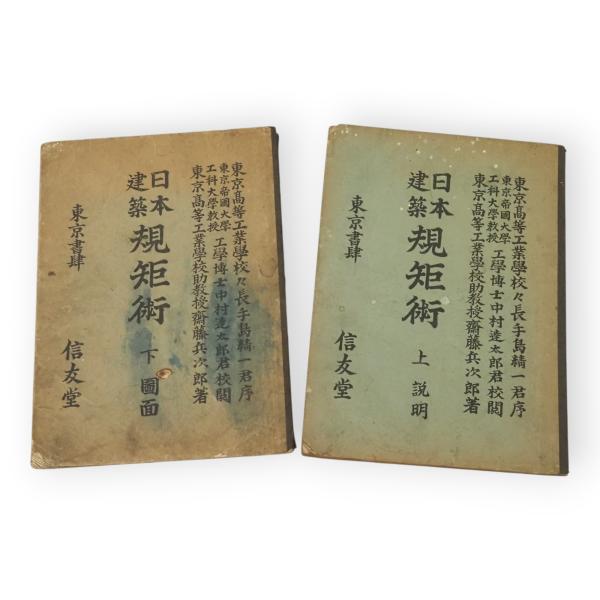 東京高等工業學校々長手島精一君序
東京帝國大學
工科大學教授
工學博士中村達太郎君校閲
東京高等工業學校助教授齋藤兵次郎著
日本
建築
規矩術
下 圖面
東京書肆
信友堂
東京高等工業學校々長手島精一君序
東京帝國大學
工科大學教授
工學博士中村達太郎君校閲
東京高等工業學校助教授齋藤兵次郎著
日本
建築
規矩術
上 説明
東京書肆
信友堂